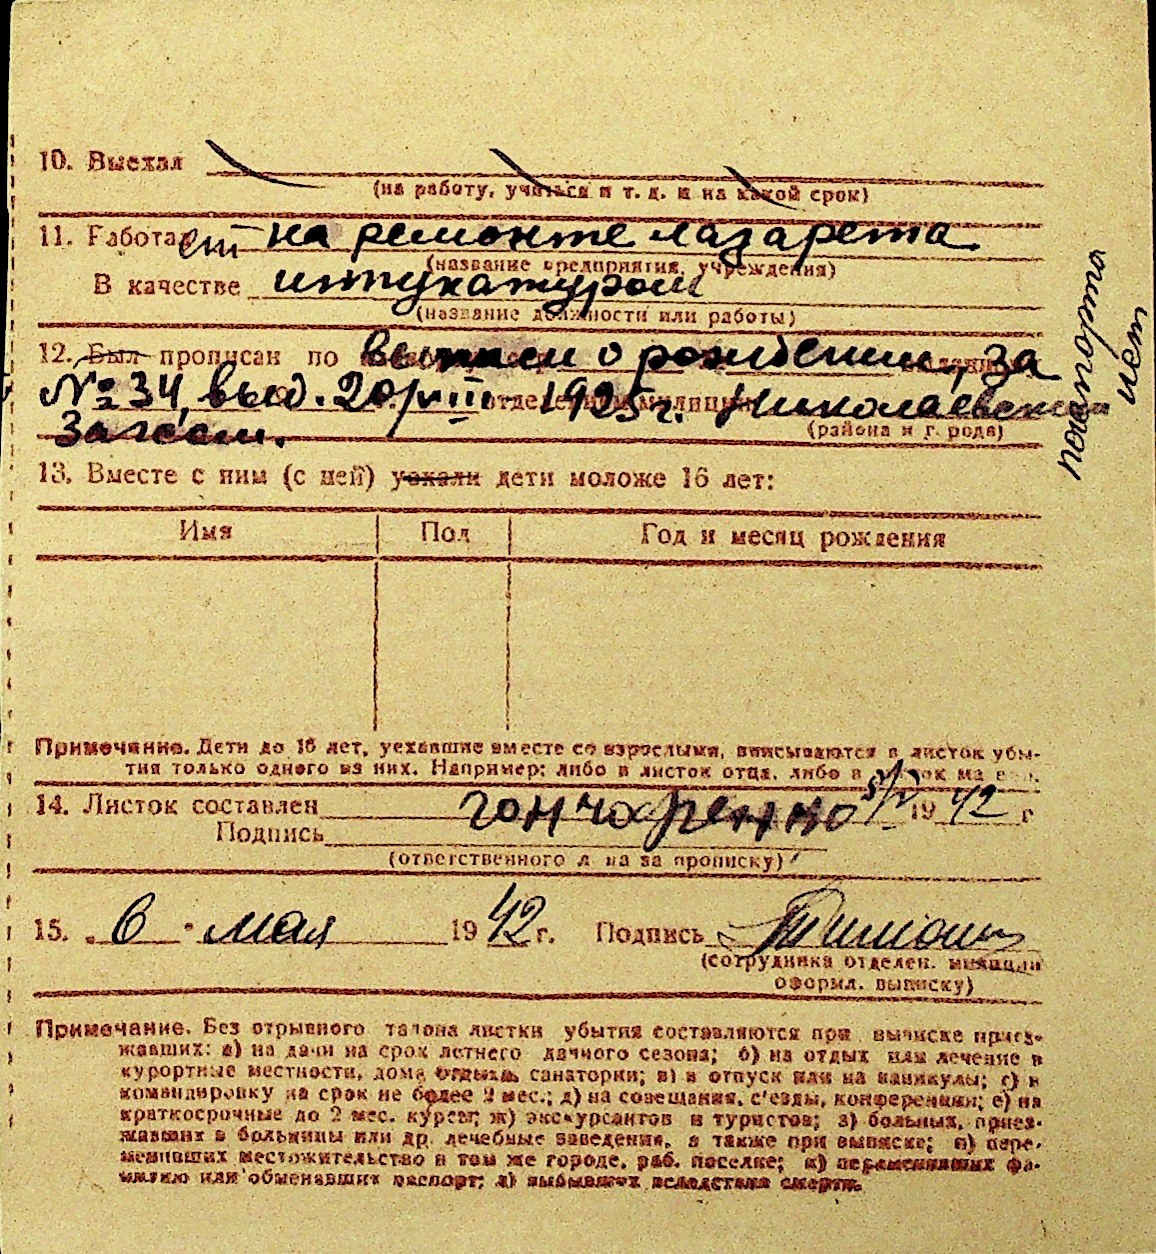 10. Выехал
(на работу, учиться и т. д. и на какой срок)
11. Работает на ремонте лазарета
(название предприятия, учреждения)
В качестве штукатуром
(название должности или работы)
12. Был прописан по выписи о рождении, за
№ 34, выд. 20/VIII - 1925 г. Николаевским
Загсом.
(района и г. рода)
паспорта
нет
13. Вместе с ним (с ней) уехали дети моложе 16 лет:
Имя Пол Год и месяц рождения
Примечание. Дети до 16 лет, уехавшие вместе со взрослыми, вписываются в листок убы-
тия только одного из них. Например: либо в листок отца, либо в
14. Листок составлен 5/V 1942 г
Гончаренко
Подпись
(ответственного л на за прописку)
15. „6" мая 1942 г. Подпись
(сотрудника отделен. милиции
оформл. выписку)
Примечание. Без отрывного талона листки убытия составляются при выписке приез-
жавших: а) на дачи на срок летнего дачного сезона; б) на отдых или лечение в
курортные местности, дома отдыха, санатории; в) в отпуск или на каникулы; г) в
командировку на срок не более 2 мес.; д) на совещания, с'езды, конференции; е) на
краткосрочные до 2 мес. курсы; ж) экскурсантов и туристов; з) больных, приез-
жавших в больницы или др. лечебные заведения, а также при выписке; и) пере-
менивших местожительство в том же городе, раб. поселке; к) переменивших фа-
милию или обменявших паспорт; л) выбывших вследствие смерти.